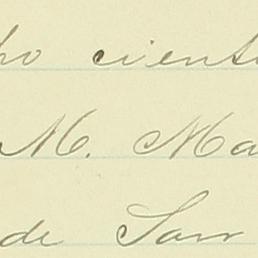 ho cient
M. Ma
de San